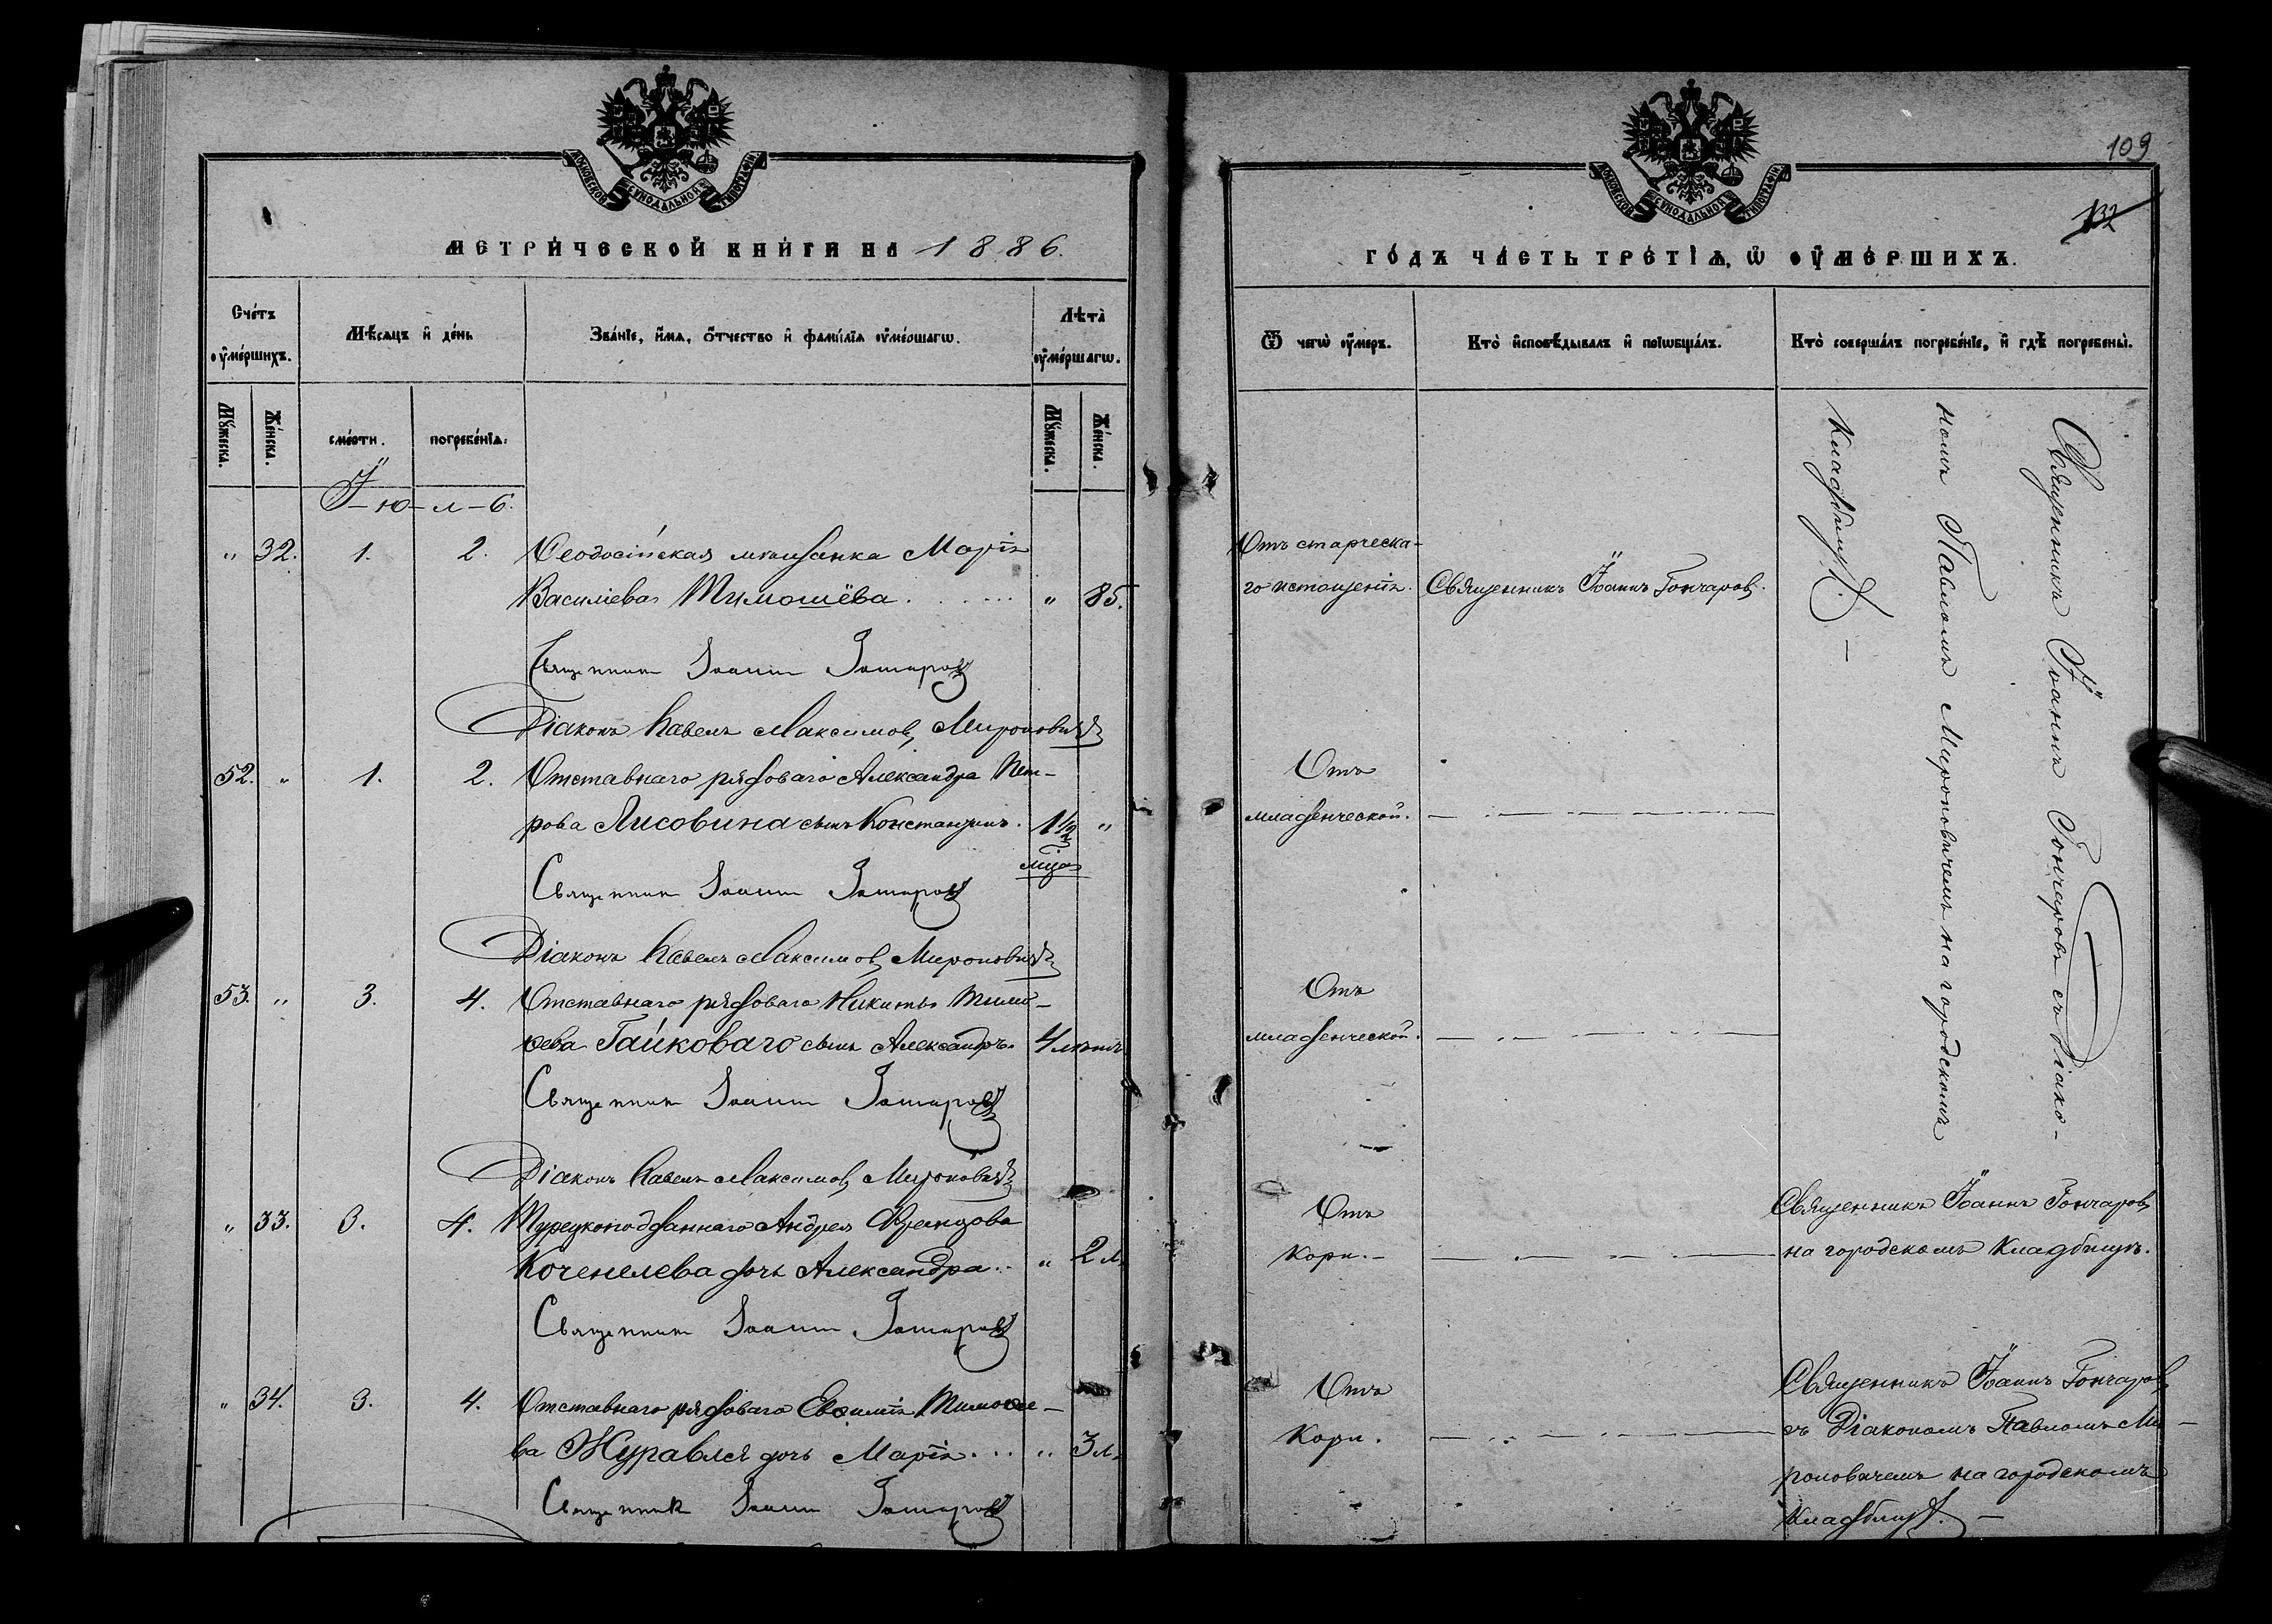 МОСКОВСКОЙ СѴНОДАЛЬНОЙ ТИПОГРАФІИ
МЕТРИ́ЧЕСКОЙ КНИ́ГИ НА 1886.
Сче́тъ оу҆ме́ршихъ.
Мѣ́сяцъ и҆ де́нь
Зва́нїе, и҆́мя, ѻ҆́тчество и҆ фами́лїя оу҆ме́ршагѡ.
Лѣта̀ оу҆ме́ршагѡ.
Мꙋ́жеска.
Же́нска.
сме́рти.
погребе́нїя.
Мꙋ́жеска.
Же́нска.
І-ю-л-ь.
" 32. 1. 2. Ѳеодосійская мѣщанка Марія
Василіева Тимошёва " 85.
Священникъ Іоаннъ Гончаровъ
Діаконъ Павелъ Максимовъ Мироновичъ
52. " 1. 2. Отставнаго рядоваго Александра Пет-
рова Лисовина сынъ Константинъ. 1½ "
мца
Священникъ Іоаннъ Гончаровъ
Діаконъ Павелъ Максимовъ Мироновичъ
53. " 3. 4. Отставнаго рядоваго Никиты Тимо-
ѳева Гайковаго сынъ Александръ. 4 лѣтъ
Священникъ Іоаннъ Гончаровъ
Діаконъ Павелъ Максимовъ Мироновичъ
" 33. 3. 4. Турецкоподданнаго Андрея
Коченелева дочь Александра. " 2 л.
Священникъ Іоаннъ Гончаровъ
" 34. 3. 4. Отставнаго рядоваго Евѳимія Тимоѳее-
ва Журавля дочь Марія... " 3 л.
Священникъ Іоаннъ Гончаровъ
109
132
МОСКОВСКОЙ СѴНОДАЛЬНОЙ ТИПОГРАФІИ
ГО́ДЪ ЧА́СТЬ ТРЕ́ТІѦ, Ѡ҆ ОУ҆МЕ́РШИХЪ.
Ѿ чегѡ̀ оу҆́меръ.
Кто̀ и҆сповѣ́дывалъ и҆ прїѡбща́лъ.
Кто̀ соверша́лъ погребе́нїе, и҆ гдѣ̀ погребены̀.
Отъ старческа-
го истощенія. Священникъ Іоаннъ Гончаровъ.
Священникъ Іоаннъ Гончаровъ съ Діако-
номъ Павломъ Мироновичемъ на городскомъ
Кладбищѣ. —
Отъ
младенческой.
Отъ
младенческой.
Отъ
Кори.
Священникъ Іоаннъ Гончаровъ
на городскомъ Кладбищѣ.
Отъ
Кори.
Священникъ Іоаннъ Гончаровъ
съ Діакономъ Павломъ Ми-
роновичемъ на городскомъ
Кладбищѣ. —